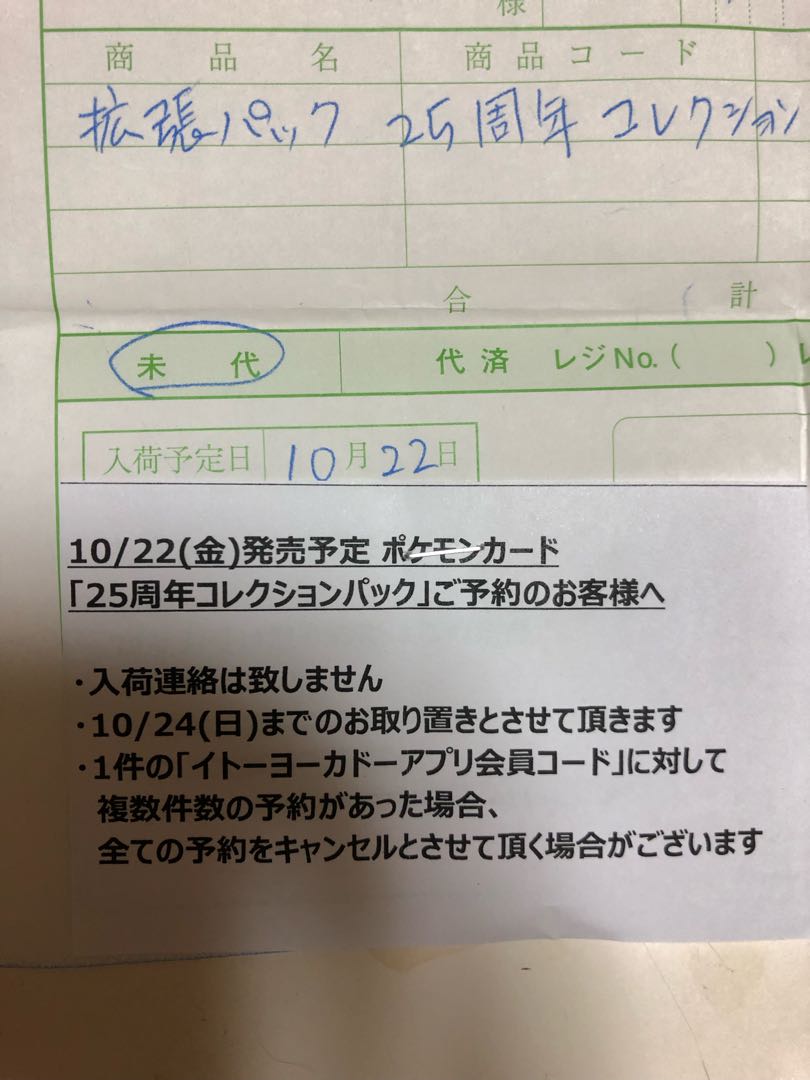 様
商品名 商品コード
拡張パック 25周年コレクション
合計
未代 代済 レジNo.( )
入荷予定日 10月22日
10/22(金)発売予定 ポケモンカード
「25周年コレクションパック」ご予約のお客様へ
・入荷連絡は致しません
・10/24(日)までのお取り置きとさせて頂きます
・1件の「イトーヨーカドーアプリ会員コード」に対して
複数件数の予約があった場合、
全ての予約をキャンセルとさせて頂く場合がございます